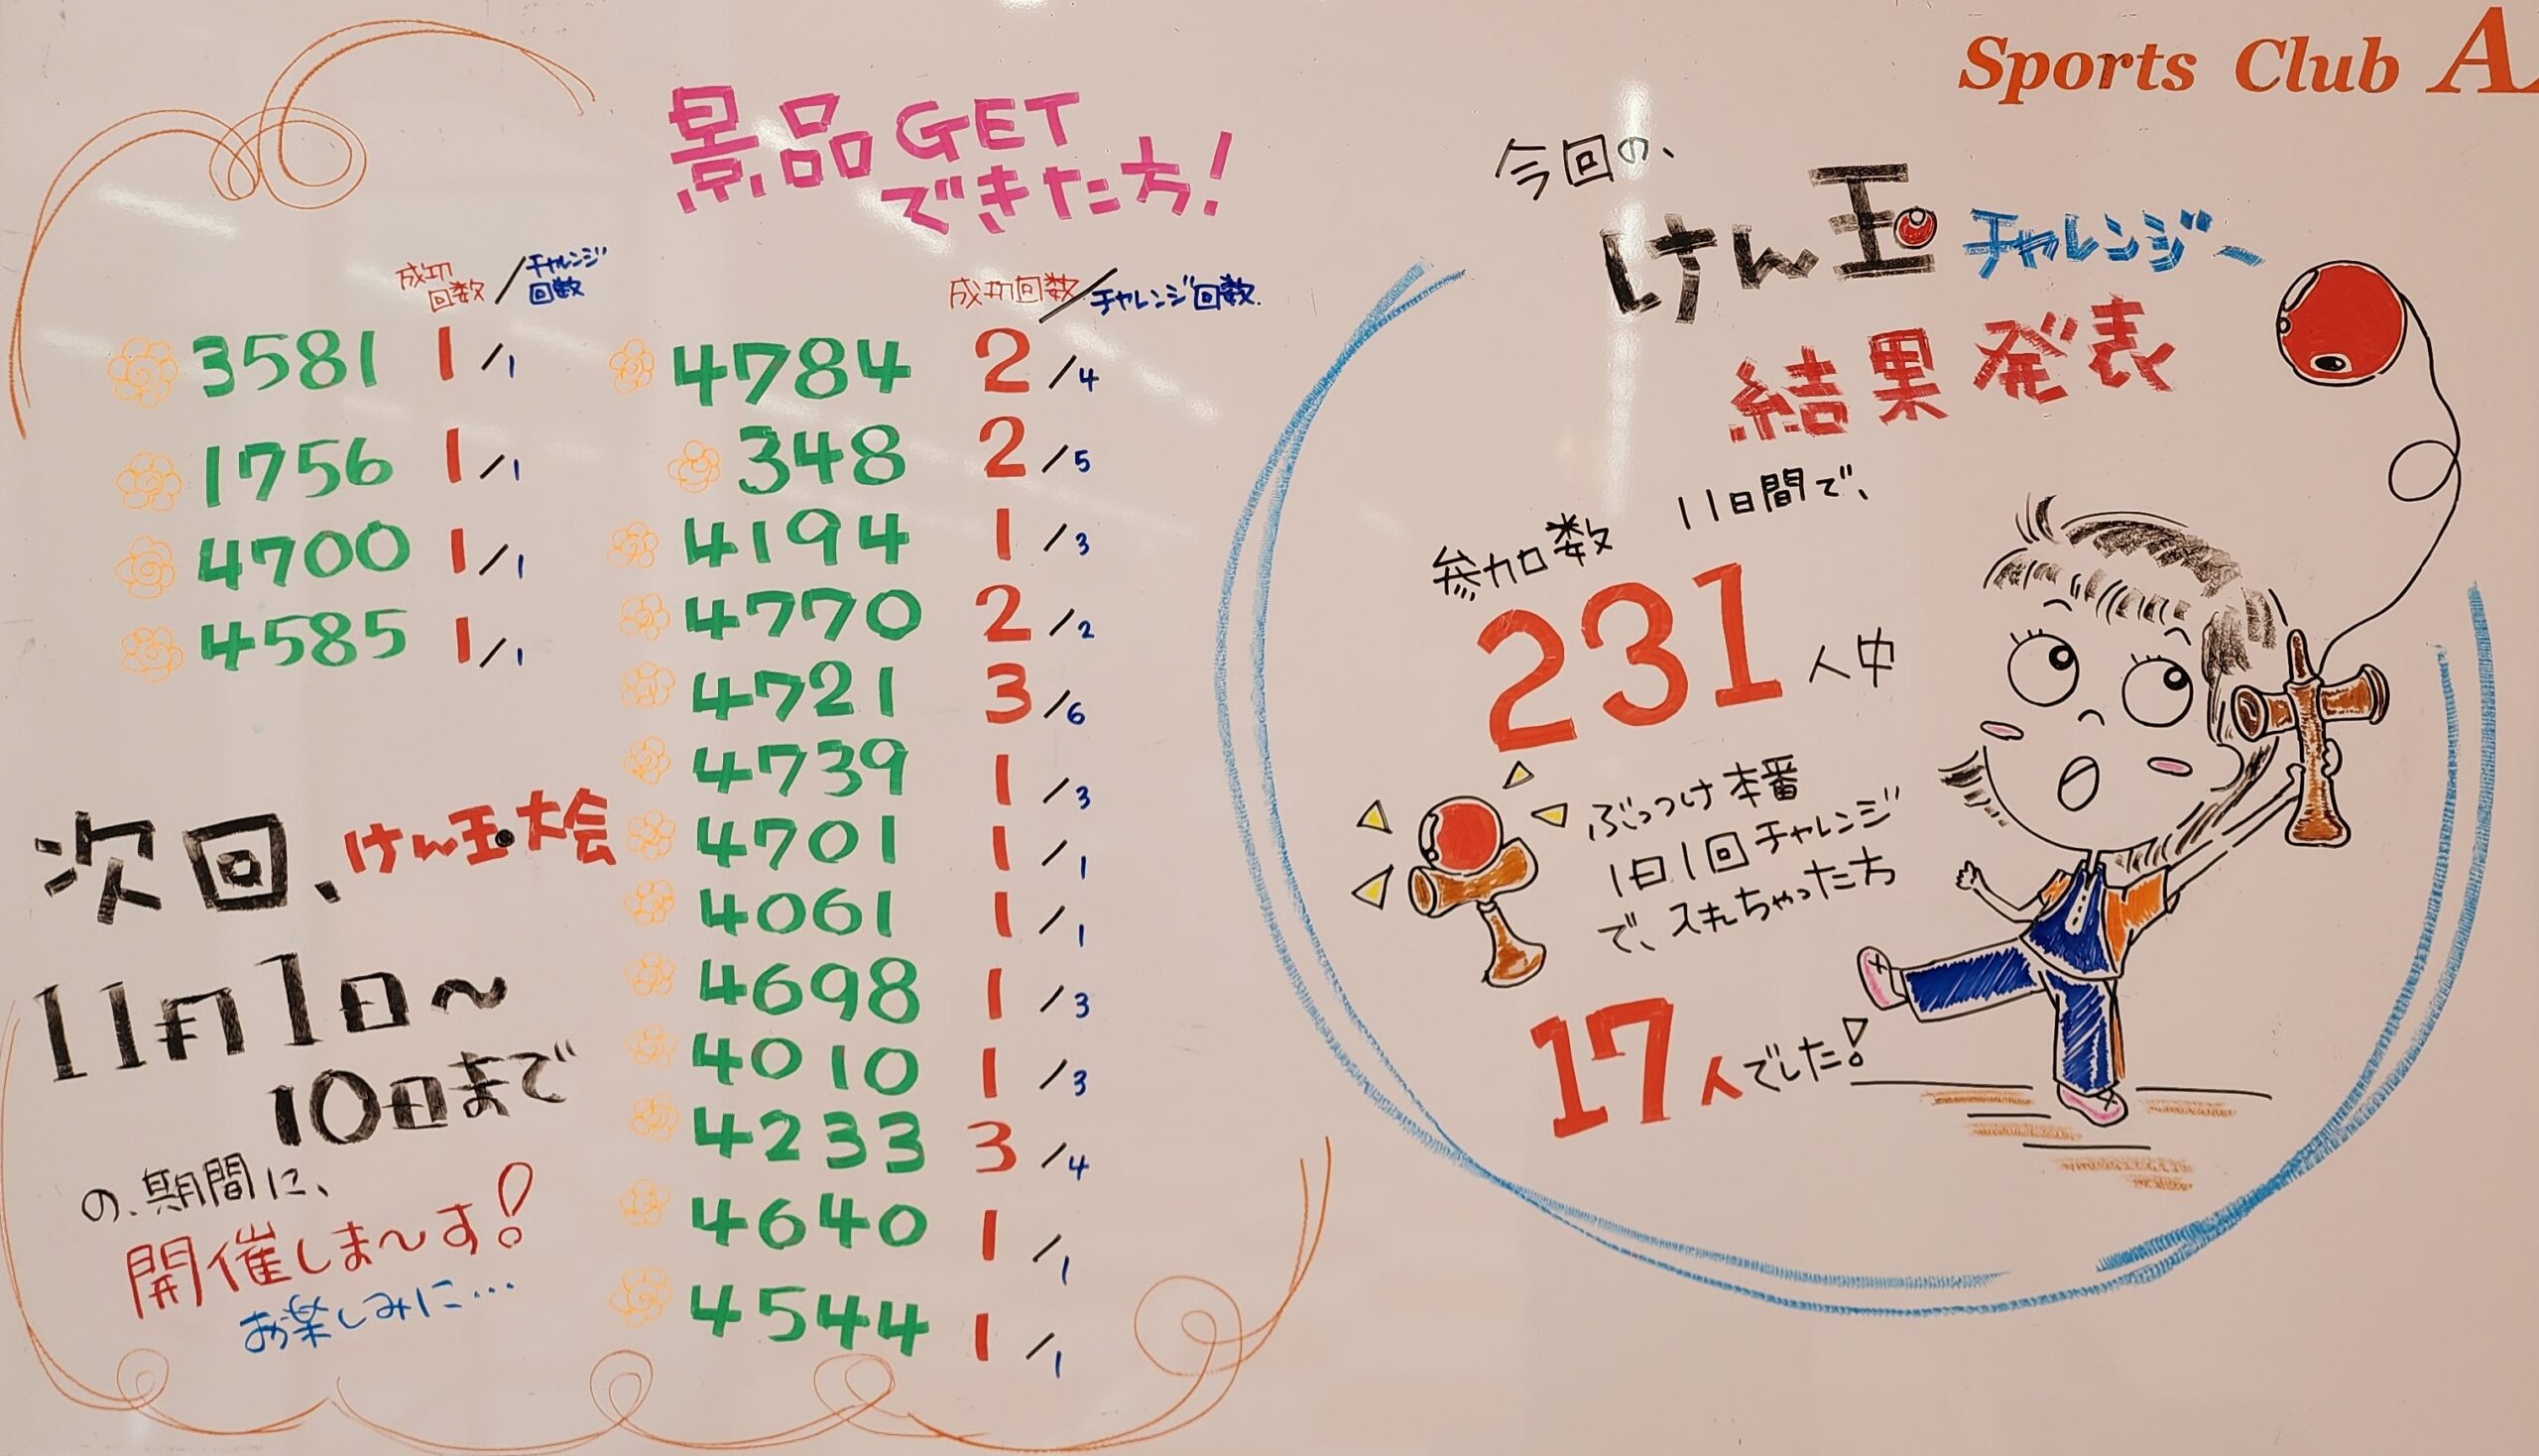 Sports Club A
景品GET
できた方!
成功
回数/チャレンジ
回数
3581 1/1
1756 1/1
4700 1/1
4585 1/1
成功回数/チャレンジ回数
4784 2/4
348 2/5
4194 1/3
4770 2/2
4721 3/6
4739 1/3
4701 1/1
4061 1/1
4698 1/3
4010 1/3
4233 3/4
4640 1/1
4544 1/1
次回、けん玉大会
11月1日〜
10日まで
の、期間に、
開催しま〜す!
お楽しみに…
今回の、
けん玉チャレンジ〜
結果発表
参加数 11日間で、
231人中
ぶっつけ本番
1日1回チャレンジ
で、入れちゃった方
17人でした!